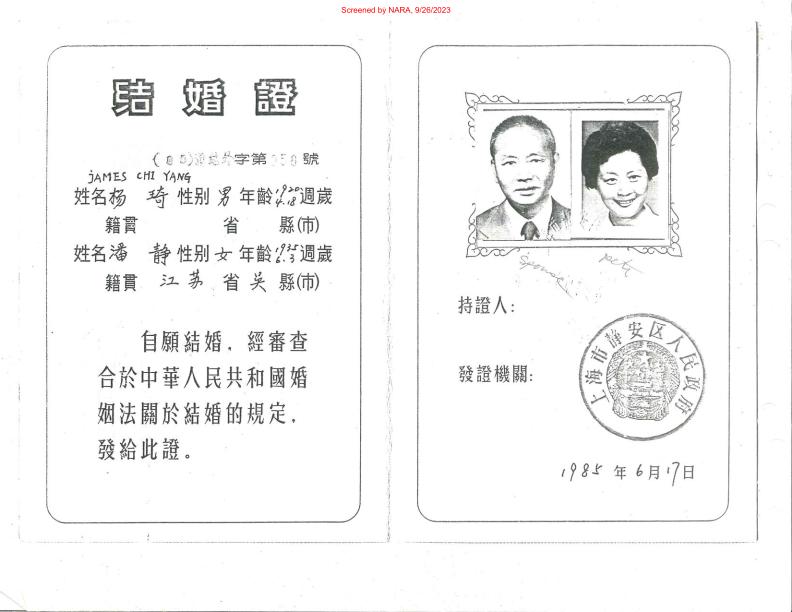 Screened by NARA, 9/26/2023
结婚證
字第 號
JAMES CHI YANG
姓名 杨 琦 性别 男 年齡 1920 4.18 週歲
籍貫 省 縣(市)
姓名 潘 静 性别 女 年齡 週歲
籍貫 江苏 省 吴 縣(市)
自願結婚，經審查
合於中華人民共和國婚
姻法關於結婚的規定，
發給此證。
持證人：
發證機關：
上海市静安区人民政府
1985 年 6 月 17 日